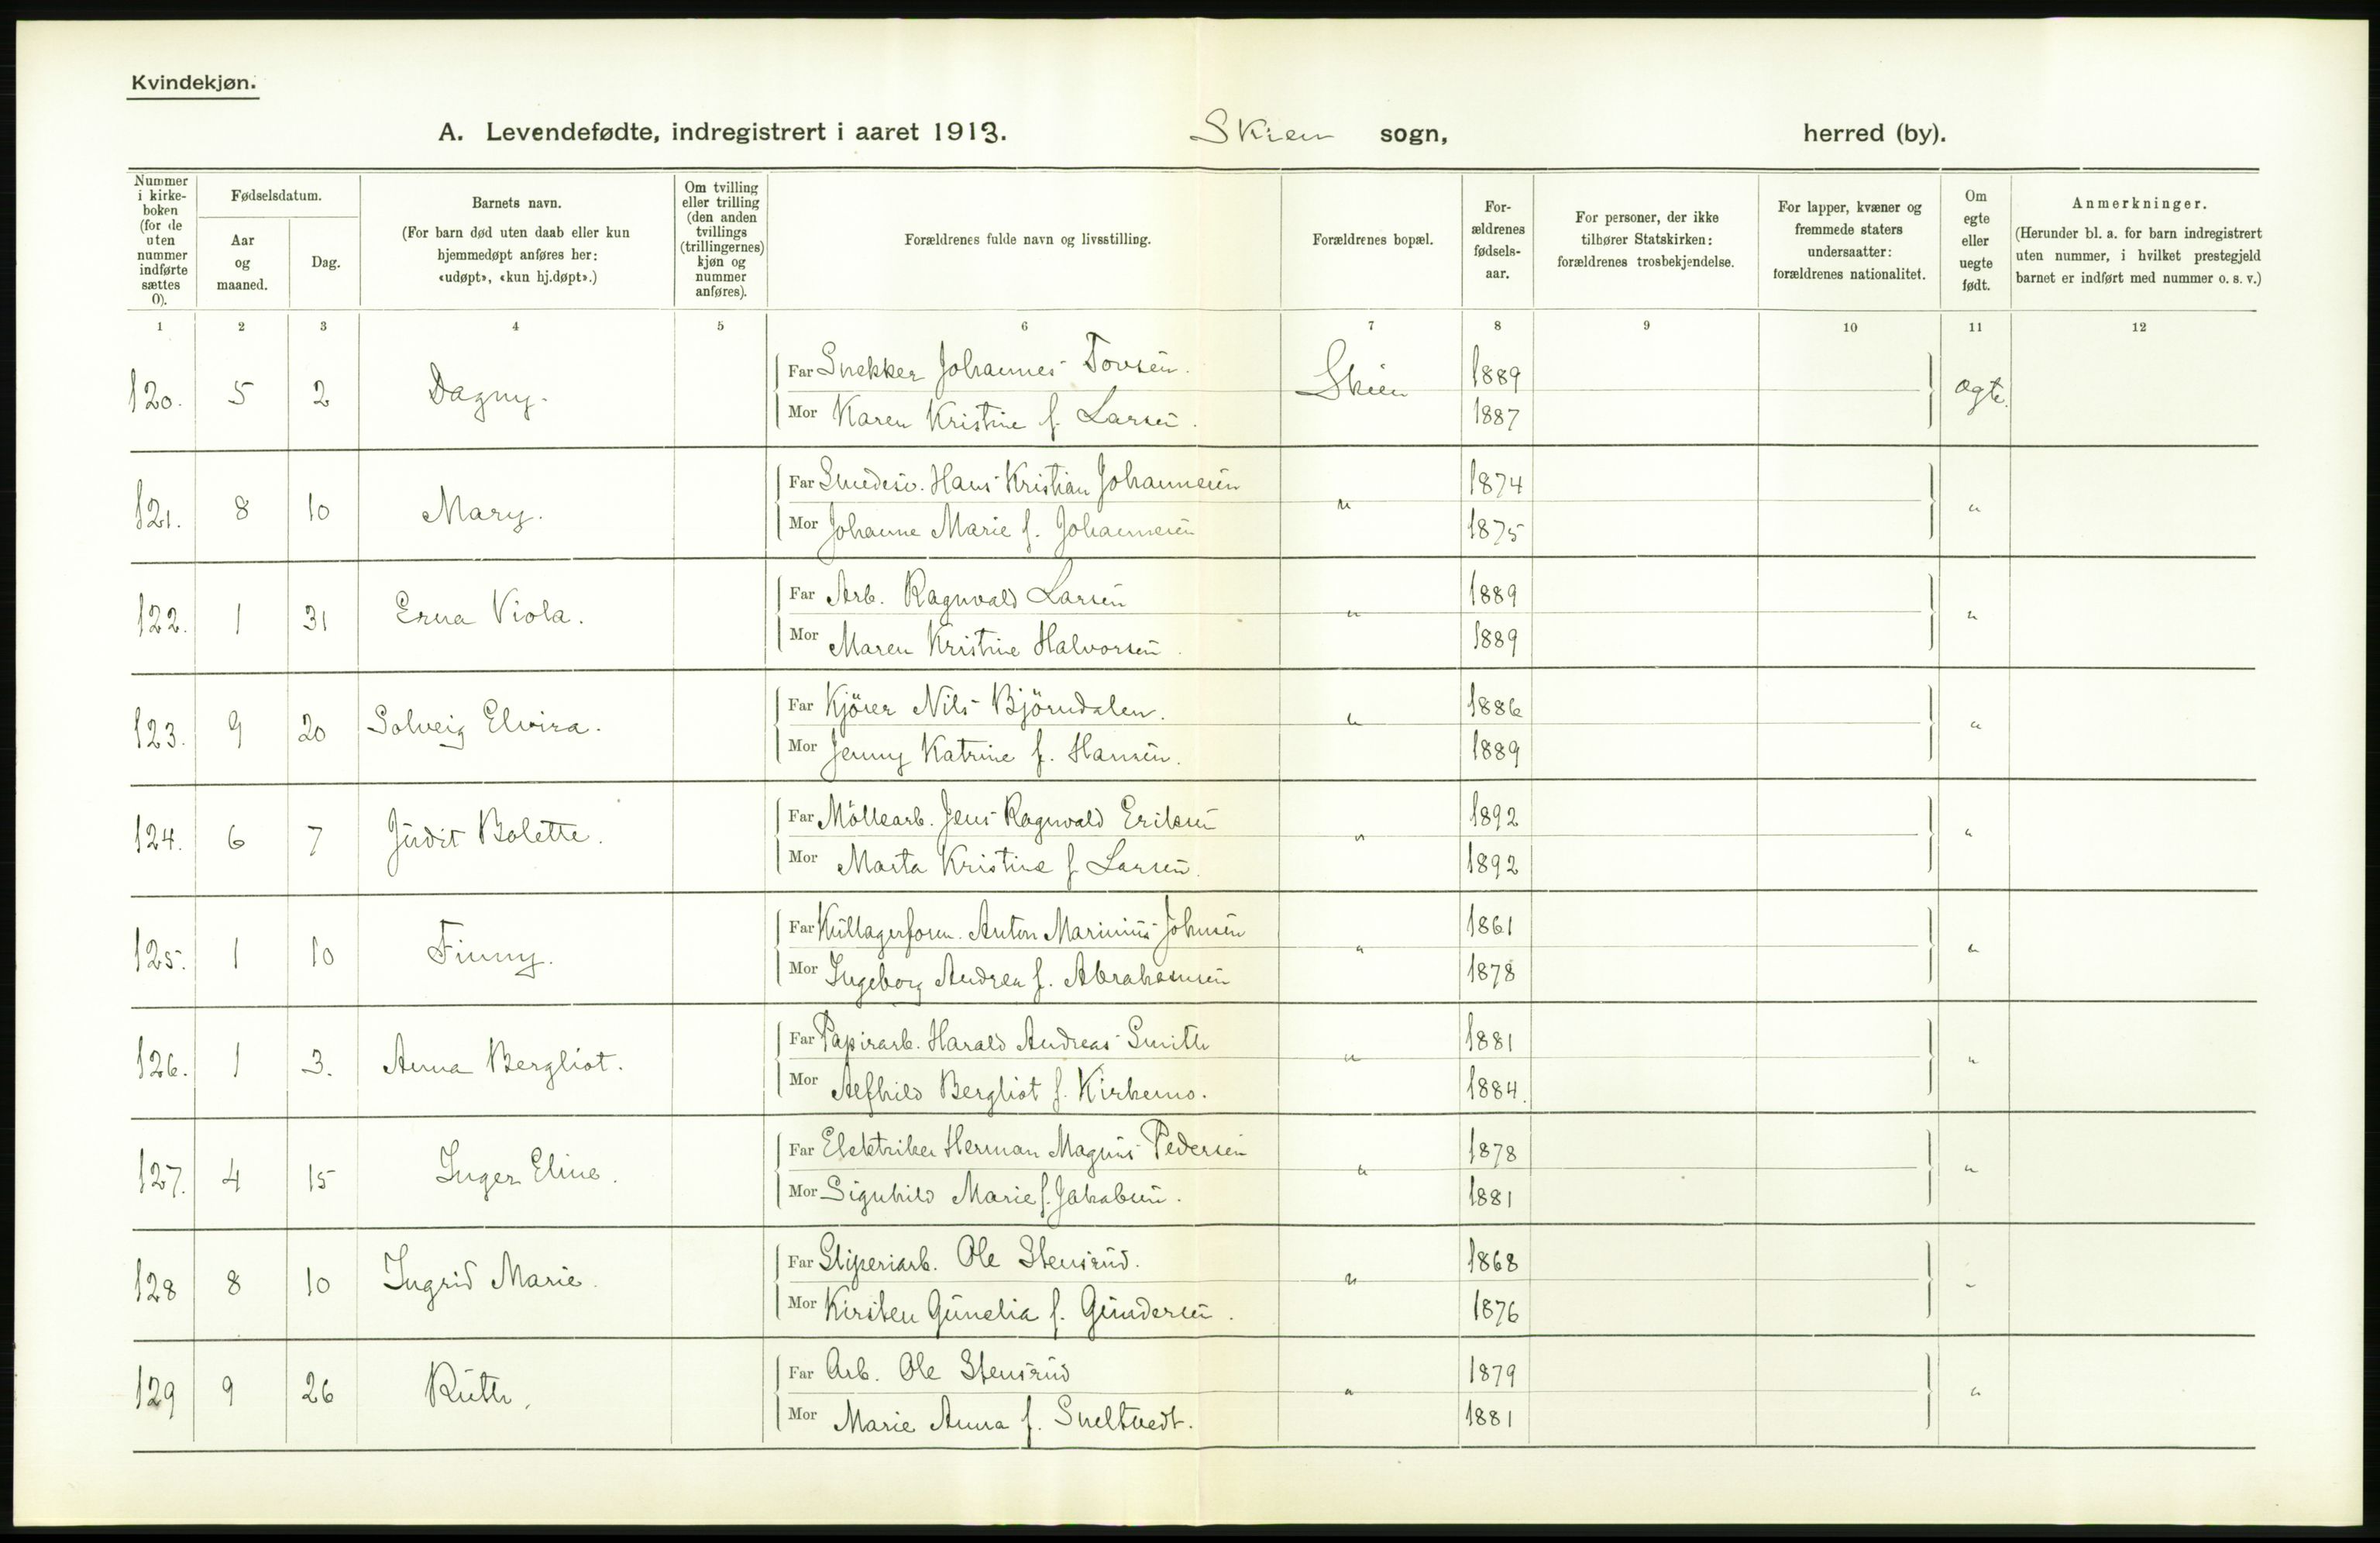 Kvindekjøn.
A. Levendefødte, indregistrert i aaret 1913. Skien sogn, herred (by).
Nummer i kirkeboken (for de uten nummer indførte sættes 0).
Fødselsdatum.
Aar og maaned.
Dag.
Barnets navn.
(For barn død uten daab eller kun hjemmedøpt anføres her: «udøpt», «kun hj.døpt».)
Om tvilling eller trilling (den anden tvillings (trillingernes) kjøn og nummer anføres).
Forældrenes fulde navn og livsstilling.
Forældrenes bopæl.
Forældrenes fødselsaar.
For personer, der ikke tilhører Statskirken: forældrenes trosbekjendelse.
For lapper, kvæner og fremmede staters undersaatter: forældrenes nationalitet.
Om egte eller uegte født.
Anmerkninger.
(Herunder bl. a. for barn indregistrert uten nummer, i hvilket prestegjeld barnet er indført med nummer o. s. v.)
1 2 3 4 5 6 7 8 9 10 11 12
120. 5 2 Dagny. Far Snekker Johannes Tovsen. Skien 1889 ægte.
Mor Karen Kristine f. Larsen. 1887
121. 8 10 Mary. Far Smedesv. Hans Kristian Johannesen " 1874 "
Mor Johanne Marie f. Johannesen 1875
122. 1 31 Erna Viola. Far Arb. Ragnvald Larsen " 1889 "
Mor Maren Kristine Halvorsen. 1889
123. 9 20 Solveig Elvira. Far Kjörer Nils Björndalen. " 1886 "
Mor Jenny Katrine f. Hansen. 1889
124. 6 7 Judit Bolette. Far Möllearb. Jens Ragnvald Eriksen " 1892 "
Mor Marta Kristine f. Larsen. 1892
125. 1 10 Finny. Far Kullagerform. Anton Marinius Johnsen " 1861 "
Mor Ingeborg Andrea f. Abrahamsen 1878
126. 1 3. Anna Bergliot. Far Papirarb. Harald Andreas Smith " 1881 "
Mor Alfhild Bergliot f. Kirkemo. 1884.
127. 4 15 Inger Eline. Far Elektriker Herman Magnus Pedersen " 1878 "
Mor Signhild Marie f. Jakobsen. 1881
128 8 10 Ingrid Marie. Far Sliperiarb. Ole Stensrud. " 1868 "
Mor Kirsten Gunelia f. Gundersen. 1876
129 9 26 Ruth. Far Arb. Ole Stensrud " 1879 "
Mor Marie Anna f. Sneltvedt. 1881